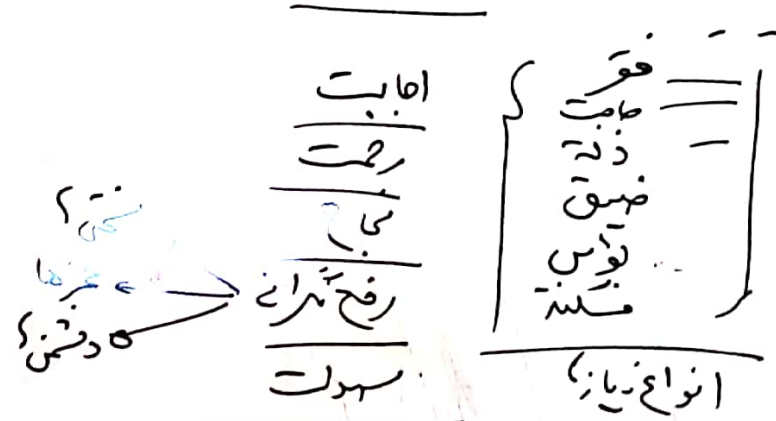 فقر
حاجت
ذلة
ضیق
بؤس
مسکنة
انواع نیازها
اجابت
رحمت
نجاح
رفع نگرانی
سهولت
سختی؟
دشمن؟